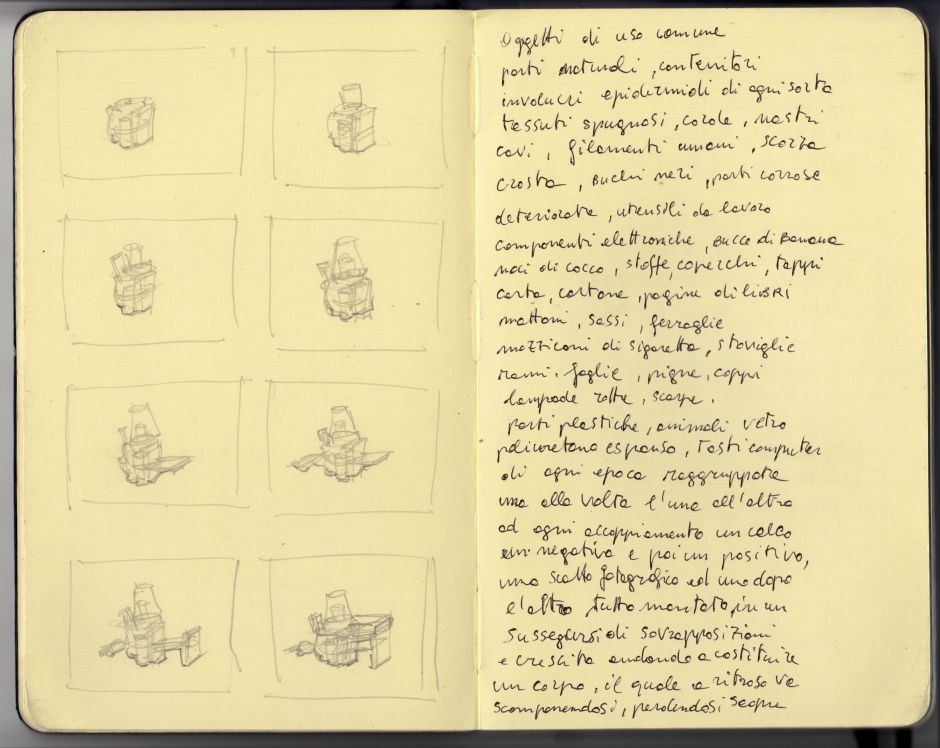 Oggetti di uso comune
parti naturali, contenitori
involucri epidermidi di ogni sorta
tessuti spugnosi, corde, nastri
cavi, filamenti umani, scorza
crosta, buchi neri, parti corrose
deteriorate, utensili da lavoro
componenti elettroniche, bucce di Banana
noci di cocco, stoffe, coperchi, tappi
carta, cartone, pagine di libri
mattoni, sassi, ferraglie
mozziconi di sigaretta, stoviglie
rami. foglie, pigne, coppi
lampade rotte, scarpe.
parti plastiche, animali vetro
poliuretano espanso, tasti computer
di ogni epoca raggruppate
una alla volta l'una all'altra
ad ogni accoppiamento un calco
un negativo e poi un positivo,
uno scatto fotografico ed uno dopo
l'altro, tutto montato, in un
susseguirsi di sovrapposizioni
e crescita andando a costituire
un corpo, il quale a ritroso va
scomponendosi, perdendosi